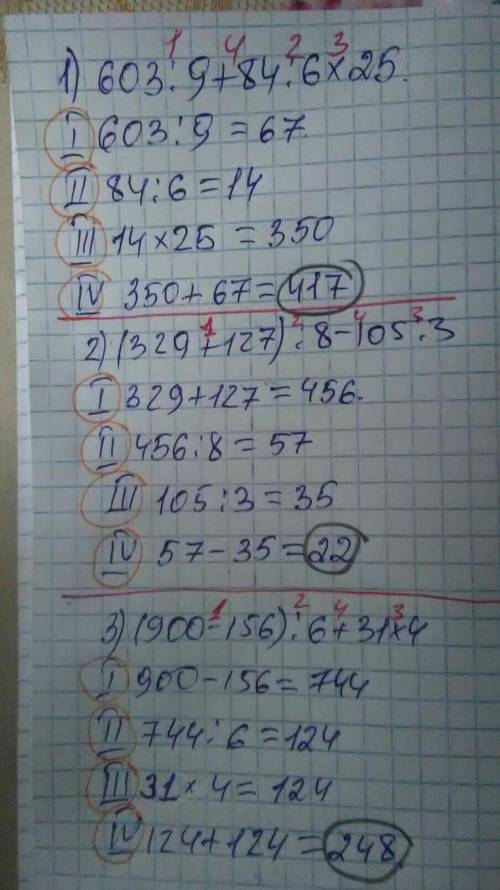 1 4 2 3
1) 603:9+84:6×25.
I 603:9=67.
II 84:6=14
III 14×25=350
IV 350+67=417
1 2 4 3
2) (329+127):8-105:3
I 329+127=456.
II 456:8=57
III 105:3=35
IV 57-35=22
1 2 4 3
3) (900-156):6+31×4
I 900-156=744
II 744:6=124
III 31×4=124
IV 124+124=248